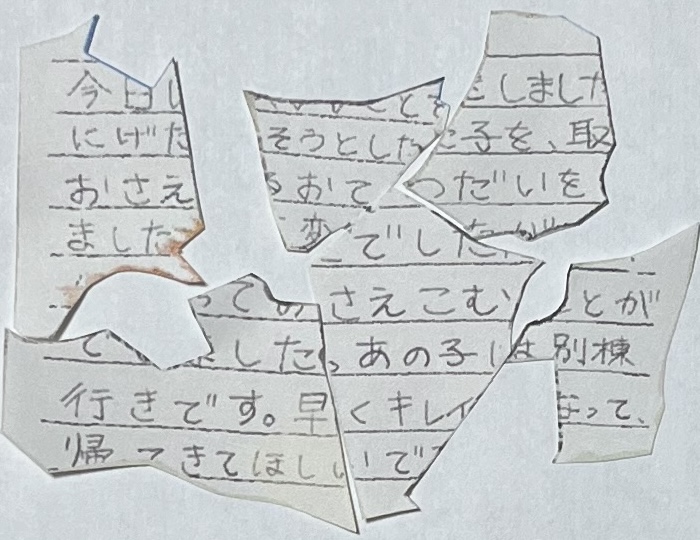 今日 ことを しました
にげだそうとした子を、取
おさえ るおてつだいを
ました 変でしたが
って おさえこむことが
で ました。あの子は別棟
行きです。早くキレイ なって、
帰ってきてほしいです